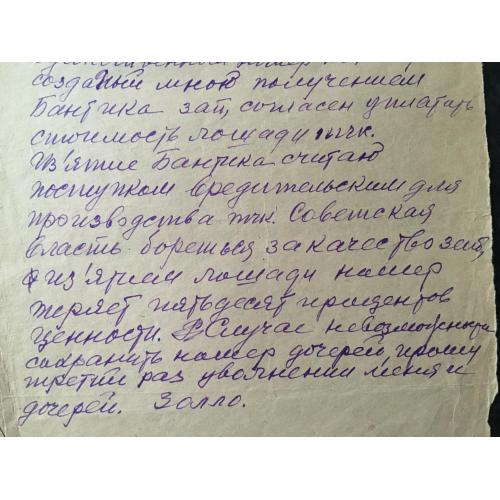 номер
созданый мною получением
Бантика зат, согласен уплатать
стоимость лошади тчк.
Из'ятие Бантика считаю
поступком вредительским для
производства тчк. Советская
власть бореться за качество зат,
с из'ятием лошади номер
теряет пятьдесят процентов
ценности. В Случае невозможности
сохранить номер дочерей, прошу
третий раз уволнении меня и
дочерей. Залло.